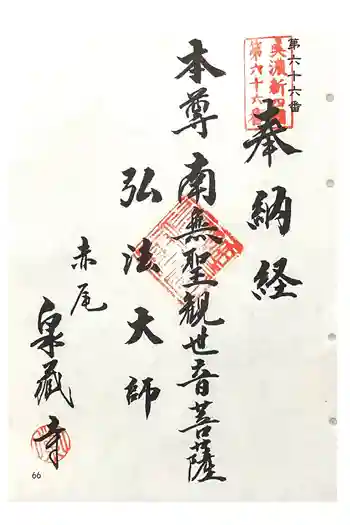 第六十六番
美濃新四国
第六十六番
奉納経
本尊 南無聖観世音菩薩
弘法大師
赤尾
泉蔵寺
66